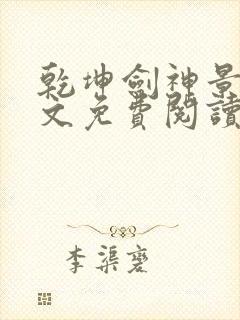 乾坤劍神景
文免費閱讀
李渠蹇